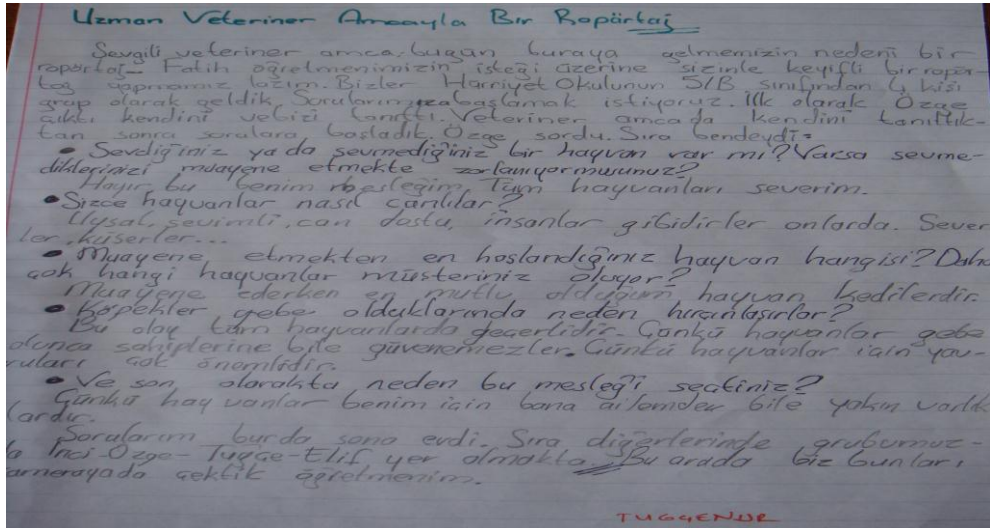 Uzman Veteriner Amcayla Bir Ropörtaj
Sevgili veteriner amca, bugün buraya gelmemizin nedeni bir
ropörtaj- Fatih öğretmenimizin isteği üzerine sizinle keyifli bir ropör-
taj yapmamız lazım. Bizler Hürriyet Okulunun 5/B sınıfından 4 kişi
grup olarak geldik. Sorularımıza başlamak istiyoruz. İlk olarak Özge
çıktı kendini ve bizi tanıttı. Veteriner amca da kendini tanıttık-
tan sonra sorulara başladık. Özge sordu. Sıra bendeydi:
• Sevdiğiniz ya da sevmediğiniz bir hayvan var mı? Varsa sevme-
diklerinizi muayene etmekte zorlanıyormusunuz?
Hayır bu benim mesleğim. Tüm hayvanları severim.
• Sizce hayvanlar nasıl canlılar?
Uysal, sevimli, can dostu, insanlar gibidirler onlarda. Sever
ler, küserler...
• Muayene etmekten en hoşlandığınız hayvan hangisi? Daha
çok hangi hayvanlar müşteriniz oluyor?
Muayene ederken en mutlu olduğum hayvan kedilerdir.
• Köpekler gebe olduklarında neden hırçınlaşırlar?
Bu olay tüm hayvanlarda geçerlidir. Çünkü hayvanlar gebe
olunca sahiplerine bile güvenemezler. Çünkü hayvanlar için yav-
ruları çok önemlidir.
• Ve son olarakta neden bu mesleği seçtiniz?
Çünkü hayvanlar benim için bana ailemden bile yakın varlık
lardır.
Sorularım burda sona erdi. Sıra diğerlerinde grubumuz-
da İnci-Özge-Tuğçe-Elif yer almakta. Bu arada biz bunları
kamerayada çektik öğretmenim.
TUĞÇENUR